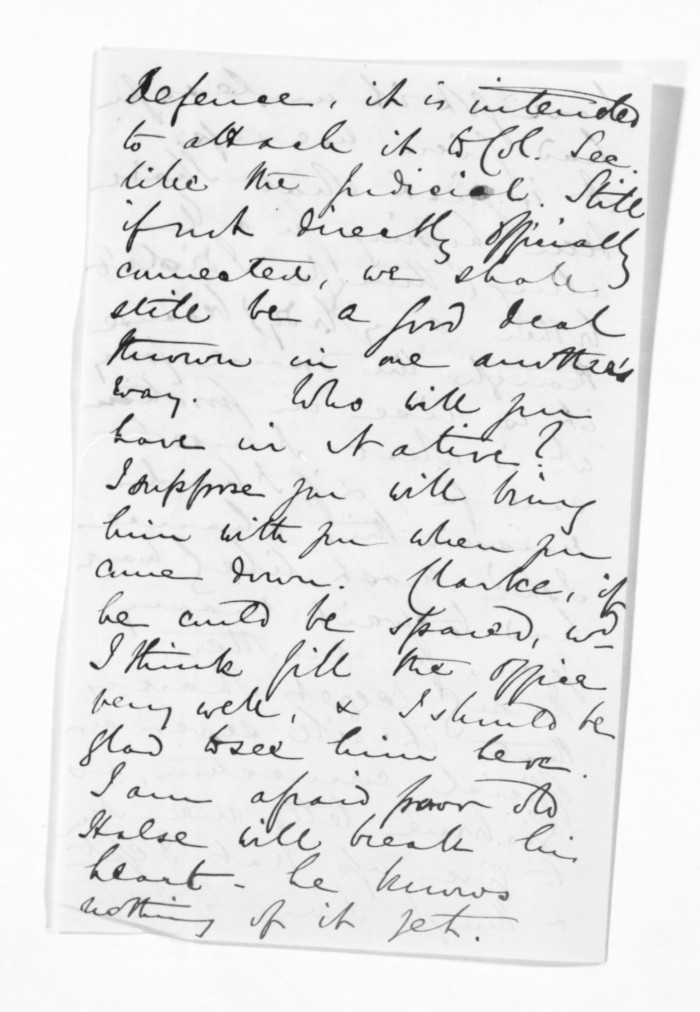 Defence, it is intended
to attach it to Col. Sec.
like the Judicial. Still
if not directly officially
connected, we shall
still be a good deal
thrown in one another's
way. Who will you
have in Native?
I suppose you will bring
him with you when you
come down. Clarke, if
he could be spared, wd
I think fill the office
very well, & I should be
glad to see him here.
I am afraid poor old
Halse will break his
heart - he knows
nothing of it yet.